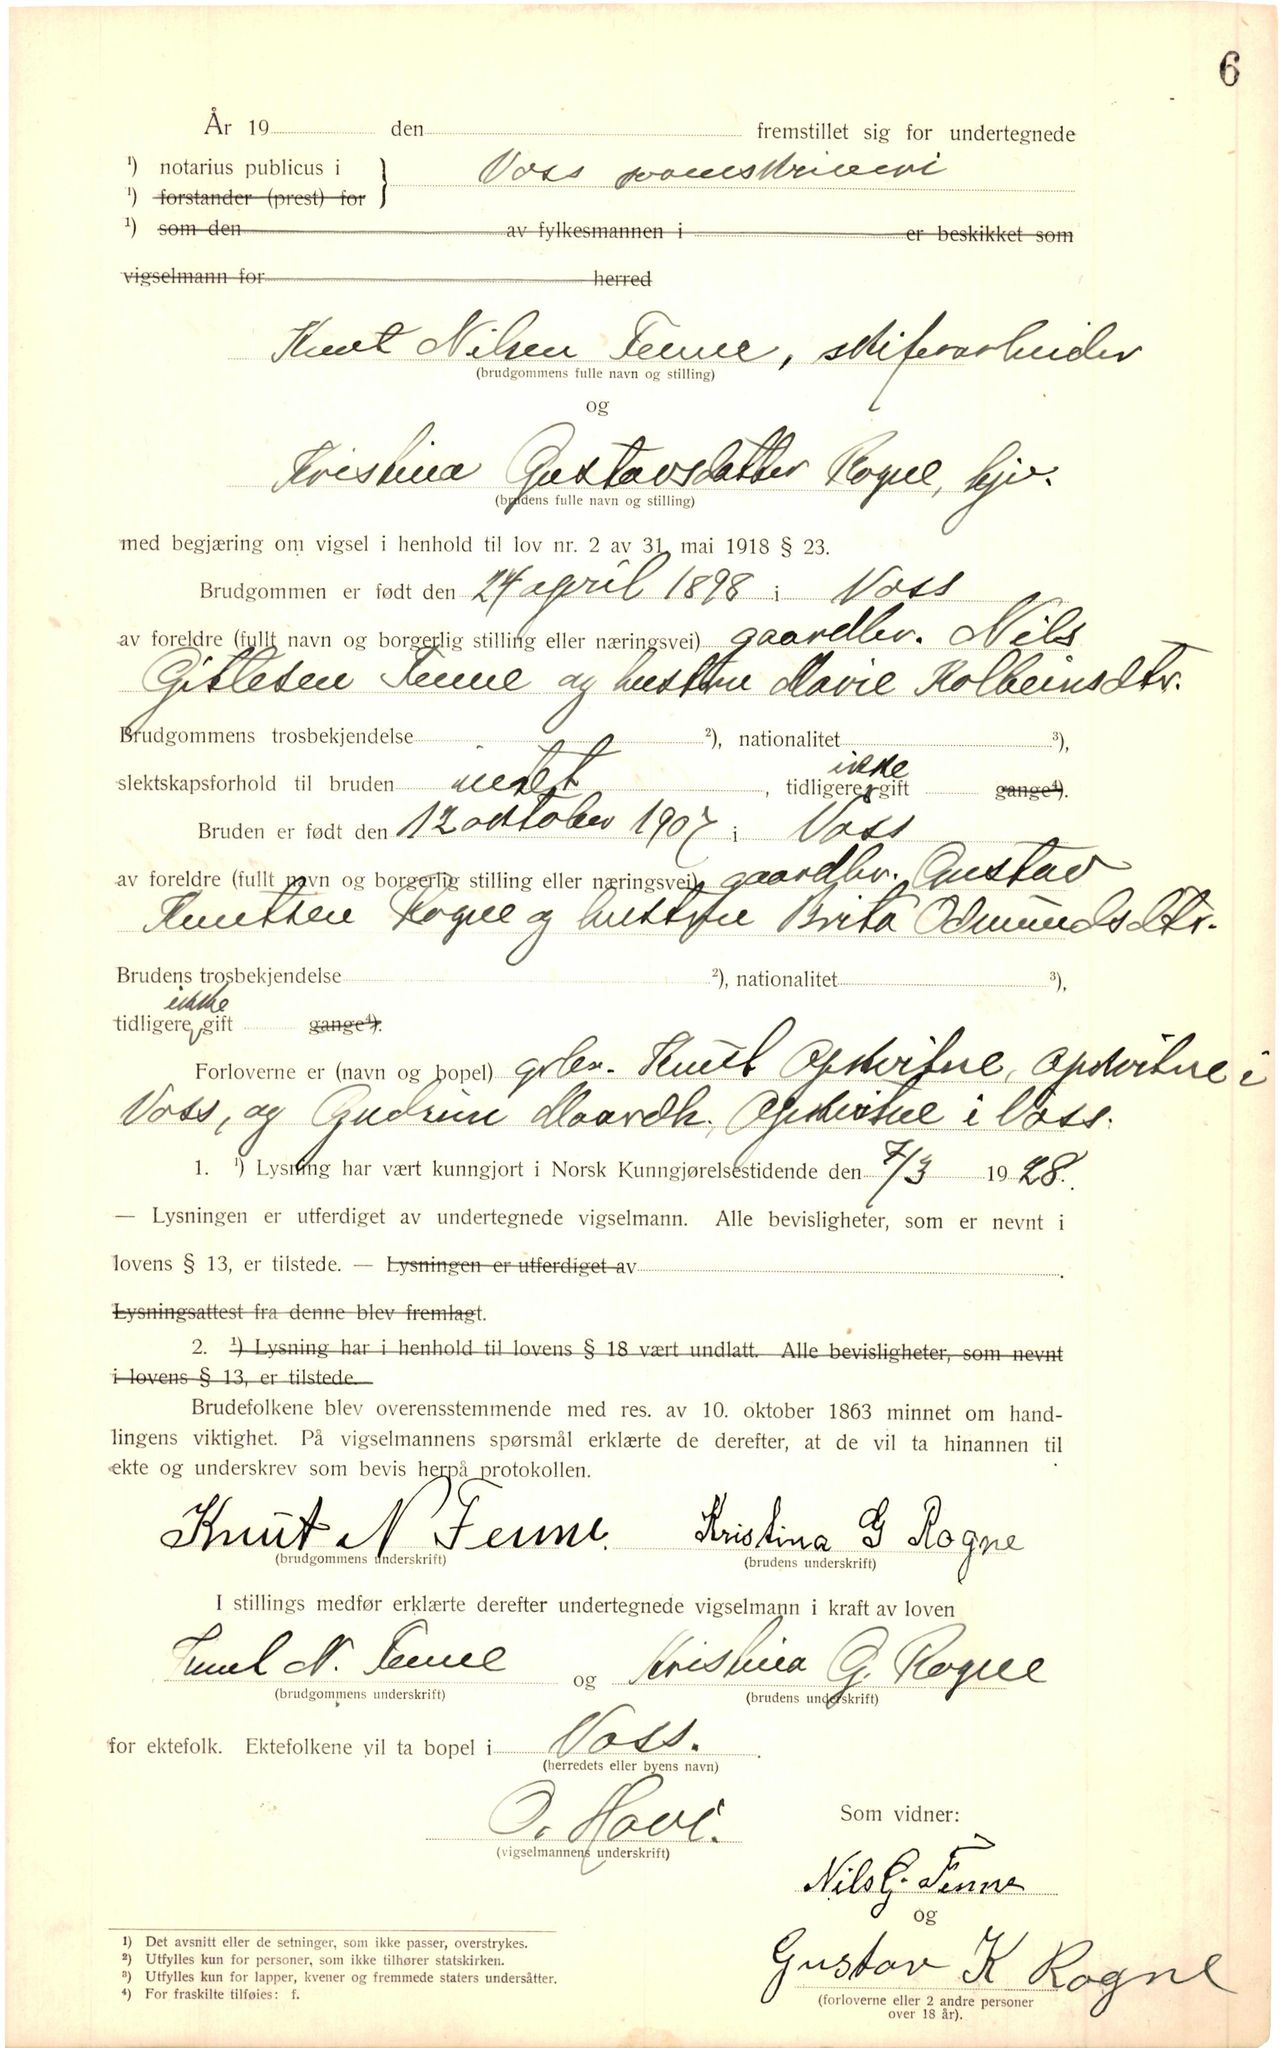 6
År 19 den fremstillet sig for undertegnede
1) notarius publicus i } Voss sorenskriveri
1) forstander (prest) for
1) som den av fylkesmannen i er beskikket som
vigselmann for herred
Knut Nilsen Fenne, skiferarbeider
(brudgommens fulle navn og stilling)
og
Kristina Gustavsdatter Rogne, hjv.
(brudens fulle navn og stilling)
med begjæring om vigsel i henhold til lov nr. 2 av 31. mai 1918 § 23.
Brudgommen er født den 24 april 1898 i Voss
av foreldre (fullt navn og borgerlig stilling eller næringsvei) gaardbr. Nils
Gitlesen Fenne og hustru Marie Kolbeinsdtr.
Brudgommens trosbekjendelse 2), nationalitet 3),
slektskapsforhold til bruden intet, tidligere ikke gift gange4).
Bruden er født den 12 oktober 1907 i Voss
av foreldre (fullt navn og borgerlig stilling eller næringsvei) gaardbr. Gustav
Knutsen Rogne og hustru Brita Odmundsdtr.
Brudens trosbekjendelse 2), nationalitet 3),
tidligere ikke gift gange4).
Forloverne er (navn og bopel) gbr. Knut Opkvitne, Opkvitne i
Voss, og Gudrun Opkvitne i Voss.
1. 1) Lysning har vært kunngjort i Norsk Kunngjørelsestidende den 7/3 1928.
— Lysningen er utferdiget av undertegnede vigselmann. Alle bevisligheter, som er nevnt i
lovens § 13, er tilstede. — Lysningen er utferdiget av .
Lysningsattest fra denne blev fremlagt.
2. 1) Lysning har i henhold til lovens § 18 vært undlatt. Alle bevisligheter, som nevnt
i lovens § 13, er tilstede.
Brudefolkene blev overensstemmende med res. av 10. oktober 1863 minnet om hand-
lingens viktighet. På vigselmannens spørsmål erklærte de derefter, at de vil ta hinannen til
ekte og underskrev som bevis herpå protokollen.
Knut N Fenne. Kristina G Rogne
(brudgommens underskrift) (brudens underskrift)
I stillings medfør erklærte derefter undertegnede vigselmann i kraft av loven
Knut N. Fenne og Kristina G. Rogne
(brudgommens underskrift) (brudens underskrift)
for ektefolk. Ektefolkene vil ta bopel i Voss.
(herredets eller byens navn)
O. Hove.
(vigselmannens underskrift)
Som vidner:
Nils G. Fenne
og
Gustav K Rogne
(forloverne eller 2 andre personer
over 18 år).
1) Det avsnitt eller de setninger, som ikke passer, overstrykes.
2) Utfylles kun for personer, som ikke tilhører statskirken.
3) Utfylles kun for lapper, kvener og fremmede staters undersåtter.
4) For fraskilte tilføies: f.